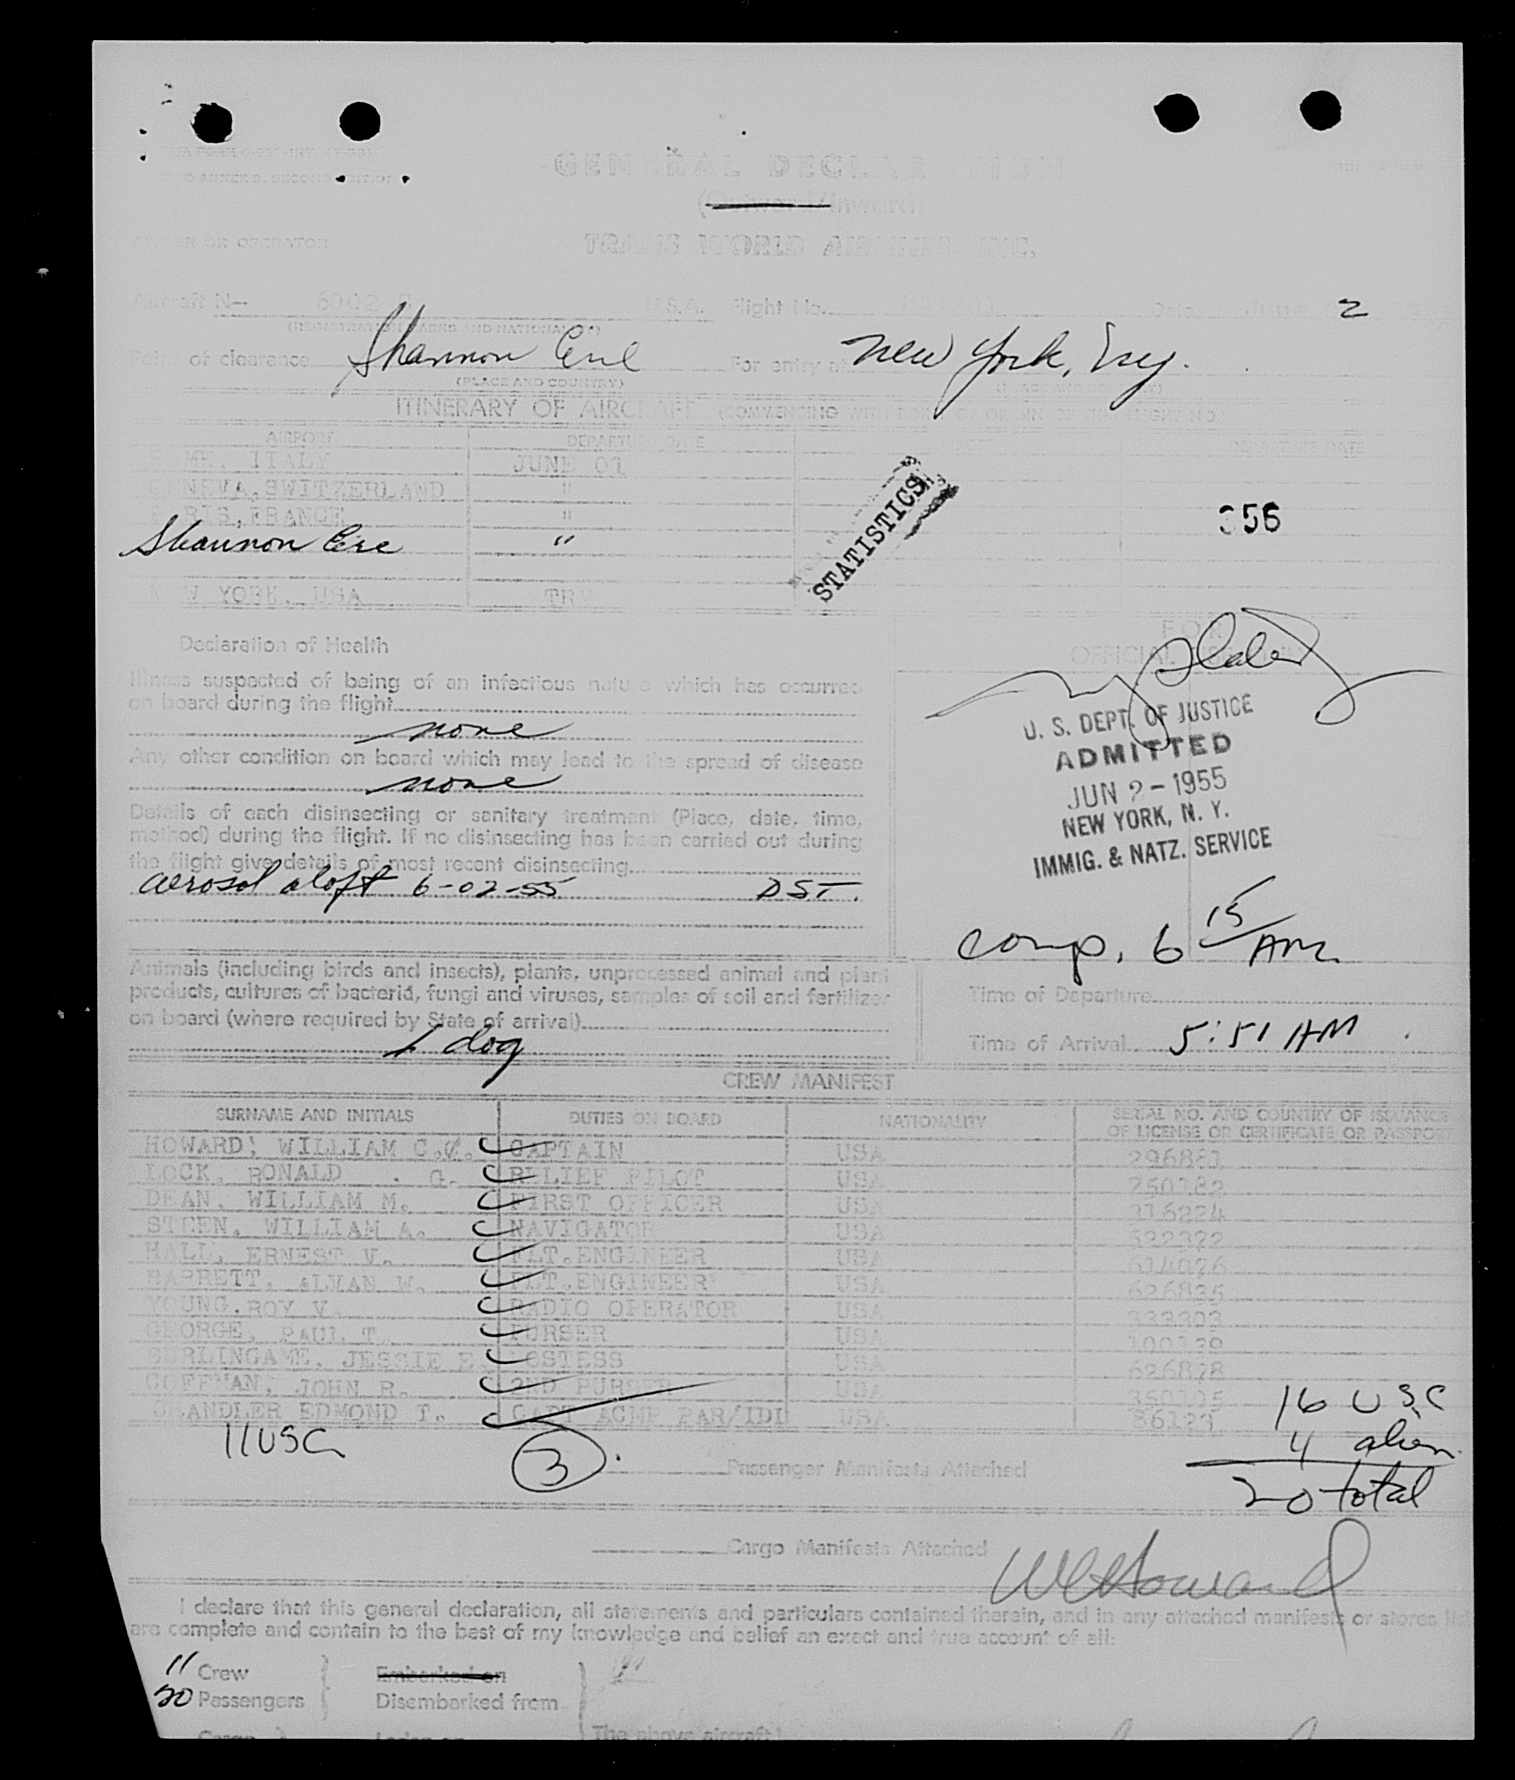 GENERAL DECLARATION
(Outward/Inward)
OR OPERATOR
TRANS WORLD AIRLINES INC.
Aircraft N- 6002 U.S.A. Flight No. Date June 2
(REGISTRATION MARKS AND NATIONALITY)
Point of clearance Shannon Eire For entry at New York, Idy.
(PLACE AND COUNTRY) (PLACE AND COUNTRY)
ITINERARY OF AIRCRAFT (COMMENCING WITH
AIRPORT DEPARTURE DATE DEPARTURE DATE
ROME, ITALY JUNE 01
GENEVA, SWITZERLAND "
PARIS, FRANCE "
Shannon Eire "
NEW YORK, USA TRM
STATISTICS
356
Declaration of Health
FOR
OFFICIAL
Illness suspected of being of an infectious nature which has occurred
on board during the flight
none
Any other condition on board which may lead to the spread of disease
none
Details of each disinsecting or sanitary treatment (Place, date, time,
method) during the flight. If no disinsecting has been carried out during
the flight give details of most recent disinsecting
aerosol aloft 6-02-55 DST.
U. S. DEPT. OF JUSTICE
ADMITTED
JUN 2 - 1955
NEW YORK, N. Y.
IMMIG. & NATZ. SERVICE
comp. 6 15 AM
Animals (including birds and insects), plants, unprocessed animal and plant
products, cultures of bacteria, fungi and viruses, samples of soil and fertilizer
on board (where required by State of arrival)
1 dog
Time of Departure
Time of Arrival 5:51 AM
CREW MANIFEST
SURNAME AND INITIALS DUTIES ON BOARD NATIONALITY SERIAL NO. AND COUNTRY OF ISSUANCE
OF LICENSE OR CERTIFICATE OR PASSPORT
HOWARD, WILLIAM C. CAPTAIN USA 296881
LOCK, RONALD G. RELIEF PILOT USA 250182
DEAN, WILLIAM M. FIRST OFFICER USA 316224
STEEN, WILLIAM A. NAVIGATOR USA
HALL, ERNEST V. FLT.ENGINEER USA
BARRETT, ALMAN W. FLT.ENGINEER USA 626835
YOUNG, ROY V. RADIO OPERATOR USA 333303
GEORGE, PAUL T. PURSER USA
BURLINGAME, JESSIE E HOSTESS USA 626828
COFFMAN, JOHN R. 2ND PURSER USA
CHANDLER EDMOND T. CAPT ACMP PAR/IDL USA
11 USC
3 Passenger Manifests Attached
16 USC
4 alien
20 total
Cargo Manifests Attached
WC Howard
I declare that this general declaration, all statements and particulars contained therein, and in any attached manifests or stores list
are complete and contain to the best of my knowledge and belief an exact and true account of all:
11 Crew Embarked on
20 Passengers Disembarked from
Cargo Laden on The above aircraft